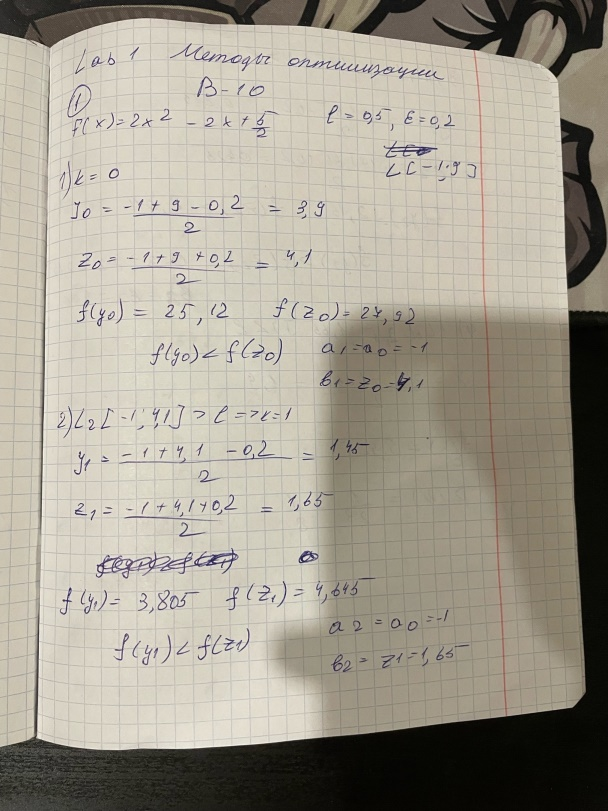 Lab 1 Методы оптимизации
В-10
① f(x)=2x² - 2x + 5/2 ℓ = 0,5, ε=0,2
L[-1;9]
1) k = 0
y₀ = (-1 + 9 - 0,2)/2 = 3,9
z₀ = (-1 + 9 + 0,2)/2 = 4,1
f(y₀) = 25,12 f(z₀) = 27,92
f(y₀) < f(z₀) a₁ = a₀ = -1
в₁ = z₀ = 4,1
2) L₂[-1; 4,1] > ℓ => k=1
y₁ = (-1 + 4,1 - 0,2)/2 = 1,45
z₁ = (-1 + 4,1 + 0,2)/2 = 1,65
f(y₁) = 3,805 f(z₁) = 4,645
f(y₁) < f(z₁) a₂ = a₀ = -1
в₂ = z₁ = 1,65